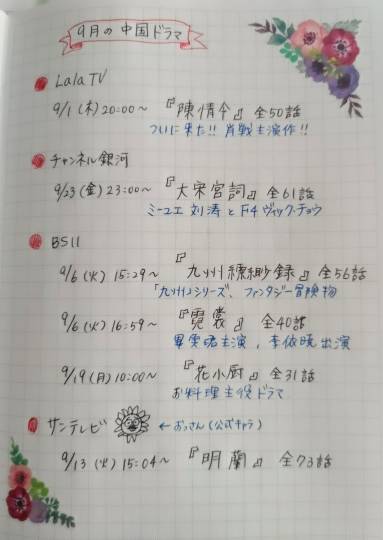 9月の中国ドラマ
LaLa TV
9/1 (木) 20:00〜 『陳情令』 全50話
ついに来た!! 肖戦主演作!!
チャンネル銀河
9/23 (金) 23:00〜 『大宋宮詞』 全61話
ミーユエ 刘涛 と F4 ヴィック・チョウ
BS11
9/6 (火) 15:29〜 『九州縹緲録』 全56話
「九州」シリーズ、ファンタジー冒険物
9/6 (火) 16:59〜 『霓裳』 全40話
畢雯珺主演、李依暁出演
9/19 (月) 10:00〜 『花小厨』 全31話
お料理主役ドラマ
サンテレビ ←おっさん (公式キャラ)
9/13 (火) 15:04〜 『明蘭』 全73話